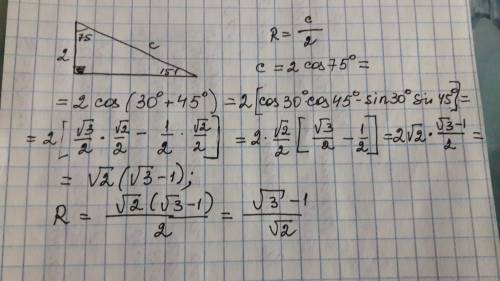 75
2
c
15°
R = c/2
c = 2 cos 75° =
= 2 cos (30° + 45°) = 2 [cos 30° cos 45° - sin 30° sin 45°] =
= 2 [√3/2 · √2/2 - 1/2 · √2/2] = 2 · √2/2 [√3/2 - 1/2] = 2√2 · (√3-1)/2 =
= √2 (√3 - 1);
R = √2 (√3-1)/2 = (√3 - 1)/√2